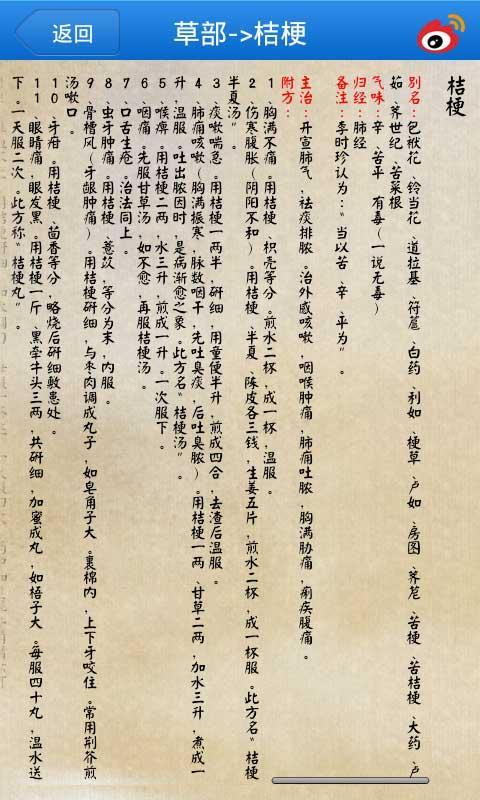 返回
草部->桔梗
桔梗
别名：包袱花、铃当花、道拉基、符蔰、白药、利如、梗草、卢如、房图、荠苨、苦梗、苦桔梗、大药、卢
茹、荠世纪、苦菜根
气味：辛、苦平 有毒(一说无毒)
归经：肺经
备注：李时珍认为：“当以苦、辛、平为”。
主治：开宣肺气，祛痰排脓。治外感咳嗽，咽喉肿痛，肺痈吐脓，胸满胁痛，痢疾腹痛。
附方：
1、胸满不痛。用桔梗、枳壳等分，煎水二杯，成一杯，温服。
2、伤寒腹胀(阴阳不和)。用桔梗、半夏、陈皮各三钱，生姜五片，煎水二杯，成一杯服。此方名“桔梗
半夏汤”。
3、痰嗽喘急。用桔梗一两半，研细，用童便半升，煎成四合，去渣后温服。
4、肺痈咳嗽(胸满振寒，脉数咽干，先吐臭痰，后吐臭脓)。用桔梗一两、甘草二两，加水三升，煮成一
升，温服。吐出脓因时，是病渐愈之象。此方名“桔梗汤”。
5、喉痹。用桔梗二两，水三升，煎成一升，一次服下。
6、咽痛。先服甘草汤，如不愈，再服桔梗汤。
7、口舌生疮。治法同上。
8、虫牙肿痛。用桔梗、薏苡，等分为末，内服。
9、骨槽风(牙龈肿痛)。用桔梗研细，与枣肉调成丸子，如皂角子大。裹棉内，上下牙咬住。常用荆芥煎
汤嗽口。
10、牙疳。用桔梗、茴香等分，略烧后研细敷患处。
11、眼睛痛，眼发黑。用桔梗一斤、黑牵牛头三两，共研细，加蜜成丸，如梧子大。每服四十丸，温水送
下。一天服二次。此方称“桔梗丸”。